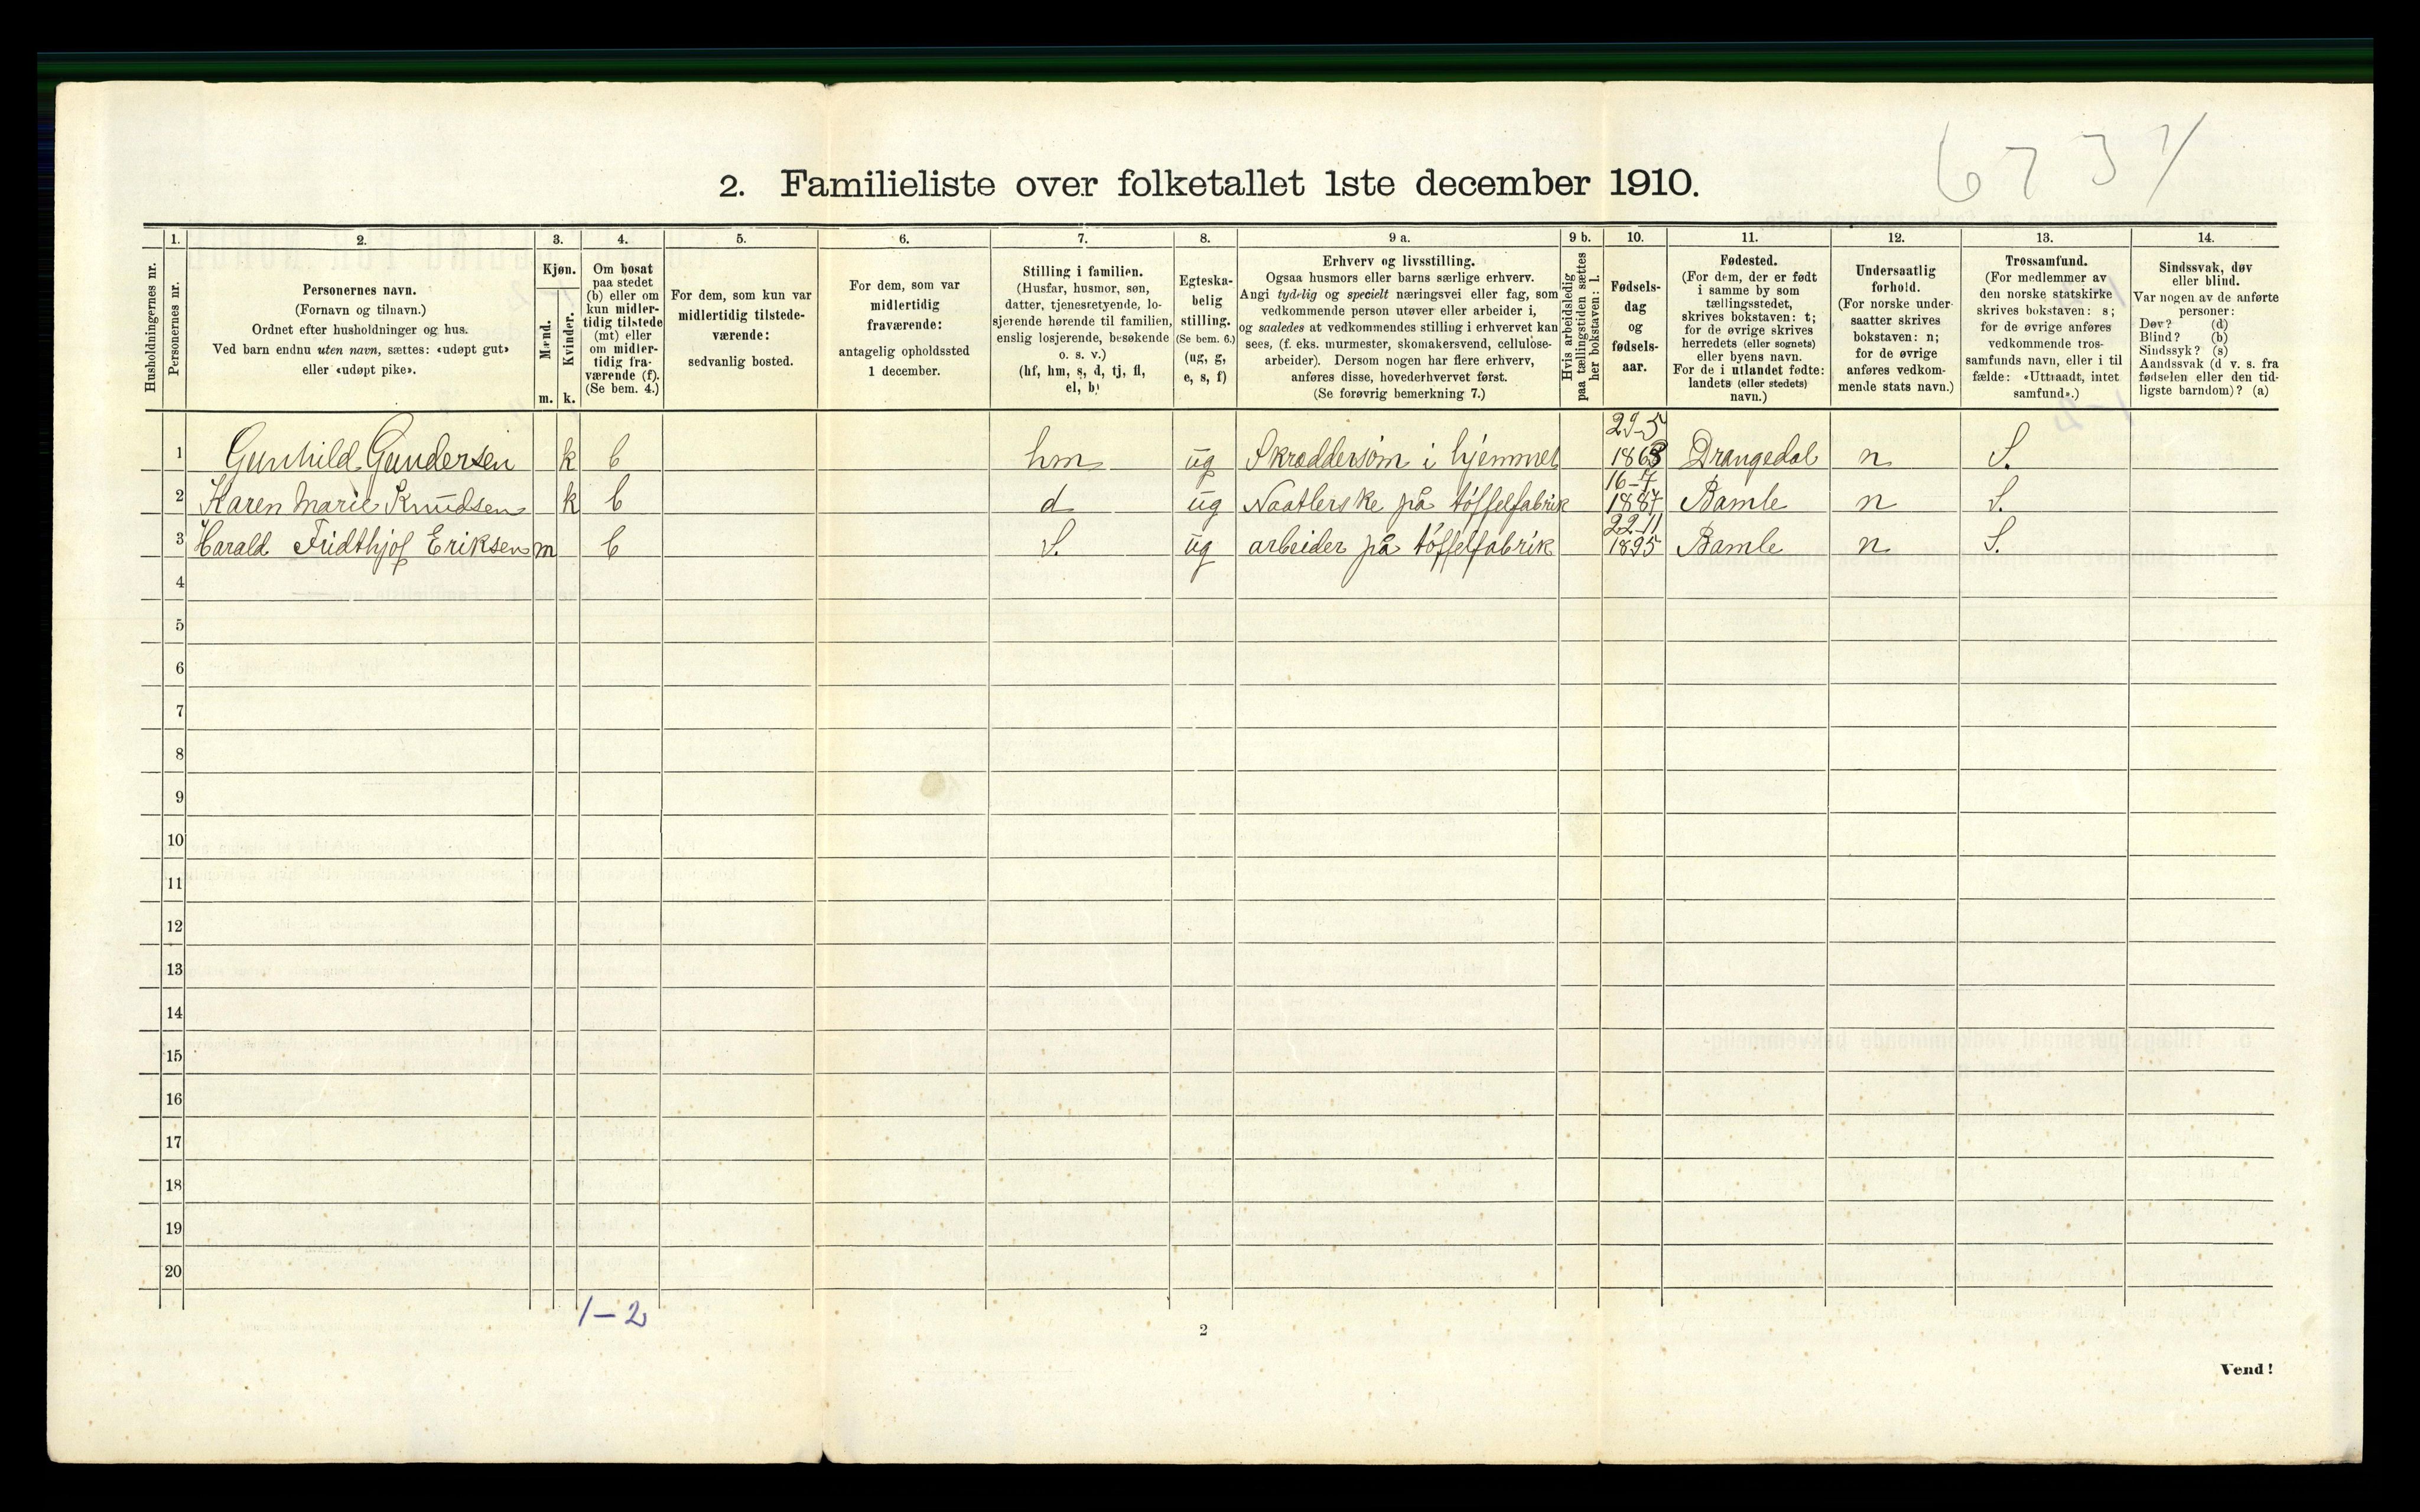 673 1/
2. Familieliste over folketallet 1ste december 1910.
Husholdningernes nr.
1.
Personernes nr.
2.
Personernes navn.
(Fornavn og tilnavn.)
Ordnet efter husholdninger og hus.
Ved barn endnu uten navn, sættes: «udøpt gut»
eller «udøpt pike».
3.
Kjøn.
Mænd.
Kvinder.
m. k.
4.
Om bosat
paa stedet
(b) eller om
kun midler-
tidig tilstede
(mt) eller
om midler-
tidig fra-
værende (f).
(Se bem. 4.)
5.
For dem, som kun var
midlertidig tilstede-
værende:
sedvanlig bosted.
6.
For dem, som var
midlertidig
fraværende:
antagelig opholdssted
1 december.
7.
Stilling i familien.
(Husfar, husmor, søn,
datter, tjenestetyende, lo-
sjerende hørende til familien,
enslig losjerende, besøkende
o. s. v.)
(hf, hm, s, d, tj, fl,
el, b)
8.
Egteska-
belig
stilling.
(Se bem. 6.)
(ug, g,
e, s, f)
9 a.
Erhverv og livsstilling.
Ogsaa husmors eller barns særlige erhverv.
Angi tydelig og specielt næringsvei eller fag, som
vedkommende person utøver eller arbeider i,
og saaledes at vedkommendes stilling i erhvervet kan
sees, (f. eks. murmester, skomakersvend, cellulose-
arbeider). Dersom nogen har flere erhverv,
anføres disse, hovederhvervet først.
(Se forøvrig bemerkning 7.)
9 b.
Hvis arbeidsledig
paa tællingstiden sættes
her bokstaven: l.
10.
Fødsels-
dag
og
fødsels-
aar.
11.
Fødested.
(For dem, der er født
i samme by som
tællingsstedet,
skrives bokstaven: t;
for de øvrige skrives
herredets (eller sognets)
eller byens navn.
For de i utlandet fødte:
landets (eller stedets)
navn.)
12.
Undersaatlig
forhold.
(For norske under-
saatter skrives
bokstaven: n;
for de øvrige
anføres vedkom-
mende stats navn.)
13.
Trossamfund.
(For medlemmer av
den norske statskirke
skrives bokstaven: s;
for de øvrige anføres
vedkommende tros-
samfunds navn, eller i til
fælde: «Uttraadt, intet
samfund».)
14.
Sindssvak, døv
eller blind.
Var nogen av de anførte
personer:
Døv? (d)
Blind? (b)
Sindssyk? (s)
Aandssvak (d v. s. fra
fødselen eller den tid-
ligste barndom)? (a)
1 Gunhild Gundersen k b hm ug Skræddersøm i hjemmet 29-5 1868 Drangedal n S.
2 Karen Marie Knudsen k b d ug Naatlerske på tøffelfabrik 16-7 1887 Bamle n S.
3 Harald Fridthjof Eriksen m b S. ug arbeider på tøffelfabrik 22-11 1895 Bamle n S.
4
5
6
7
8
9
10
11
12
13
14
15
16
17
18
19
20
1-2
2
Vend!